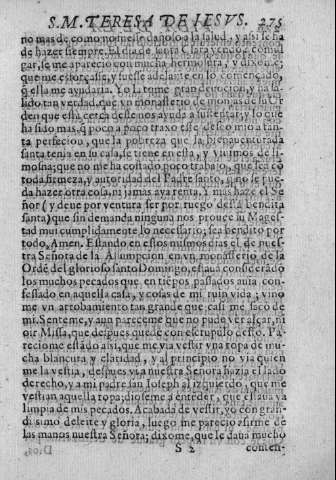 S. M. TERESA DE IESVS. 275
no mas de como no me le dañolo a la salud, y assi se ha
de hazer siempre. El dia de santa Clara yendo a comul
gar, se me aparecio con mucha hermosura, y dixome:
que me esforçasse, y fuesse adelante en lo començado,
q̃ ella me ayudaria. Yo le tome gran deuocion, y ha sa
lido tan verdad, que vn monasterio de monjas de su Or
den que esta cerca deste nos ayuda a sustentar: y lo que
ha sido mas, q̃ poco a poco traxo este desseo mio a tan
ta perfecion, que la pobreza que la bienauenturada
santa tenia en su casa, se tiene en esta, y viuimos de li
mosna: que no me ha costado poco trabajo, que sea cō
toda firmeza, y autoridad del Padre santo, que no se pue
da hazer otra cosa, ni jamas aya renta. Y mas haze el Se
ñor (y deue por ventura ser por ruego desta bendita
santa) que sin demanda ninguna nos prouee su Mages-
tad mui cumplidamente lo necessario; sea bendito por
todo, Amen. Estando en estos mismos dias el de nues-
tra Señora de la Assumpcion en vn monasterio de la
Ordē del glorioso santo Domingo, estaua considerādo
los muchos pecados que en tiēpos passados auia con-
fessado en aquella casa, y cosas de mi ruin vida; vino
me vn arrobamiento tan grande que casi me saco de
mi. Senteme, y aun pareceme que no pude ver alçar, ni
oir Missa, que despues quede con escrupulo desto. Pa-
reciome estādo assi, que me via vestir vna ropa de mu-
cha blancura, y claridad, y al principio no via quien
me la vestia, despues vi a nuestra Señora hazia el lado
derecho, y a mi padre san Ioseph al izquierdo, que me
vestian aquella ropa; dioseme a entēder, que estaua ya
limpia de mis pecados. Acabada de vestir, yo con gran-
disimo deleite y gloria, luego me parecio asirme de
las manos nuestra Señora; dixome, que le daua mucho
S 2 conten-